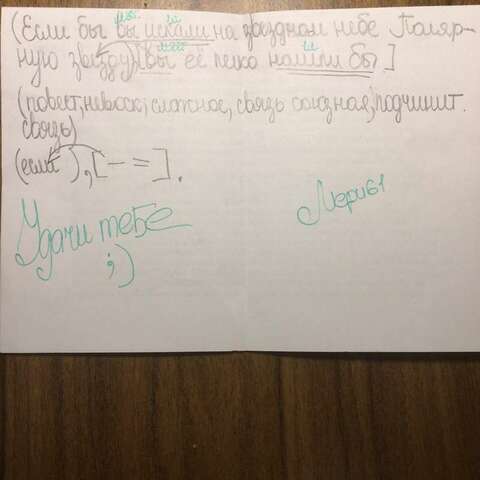 (Если бы вы искали на звездном небе Поляр-
мес. гл.
ную звезду), [вы её легко нашли бы]
мест. гл.
(повест., невоскл., сложное, связь союзная, подчинит.
связь)
(если ), [— =].
Удачи тебе
;)
Мери61